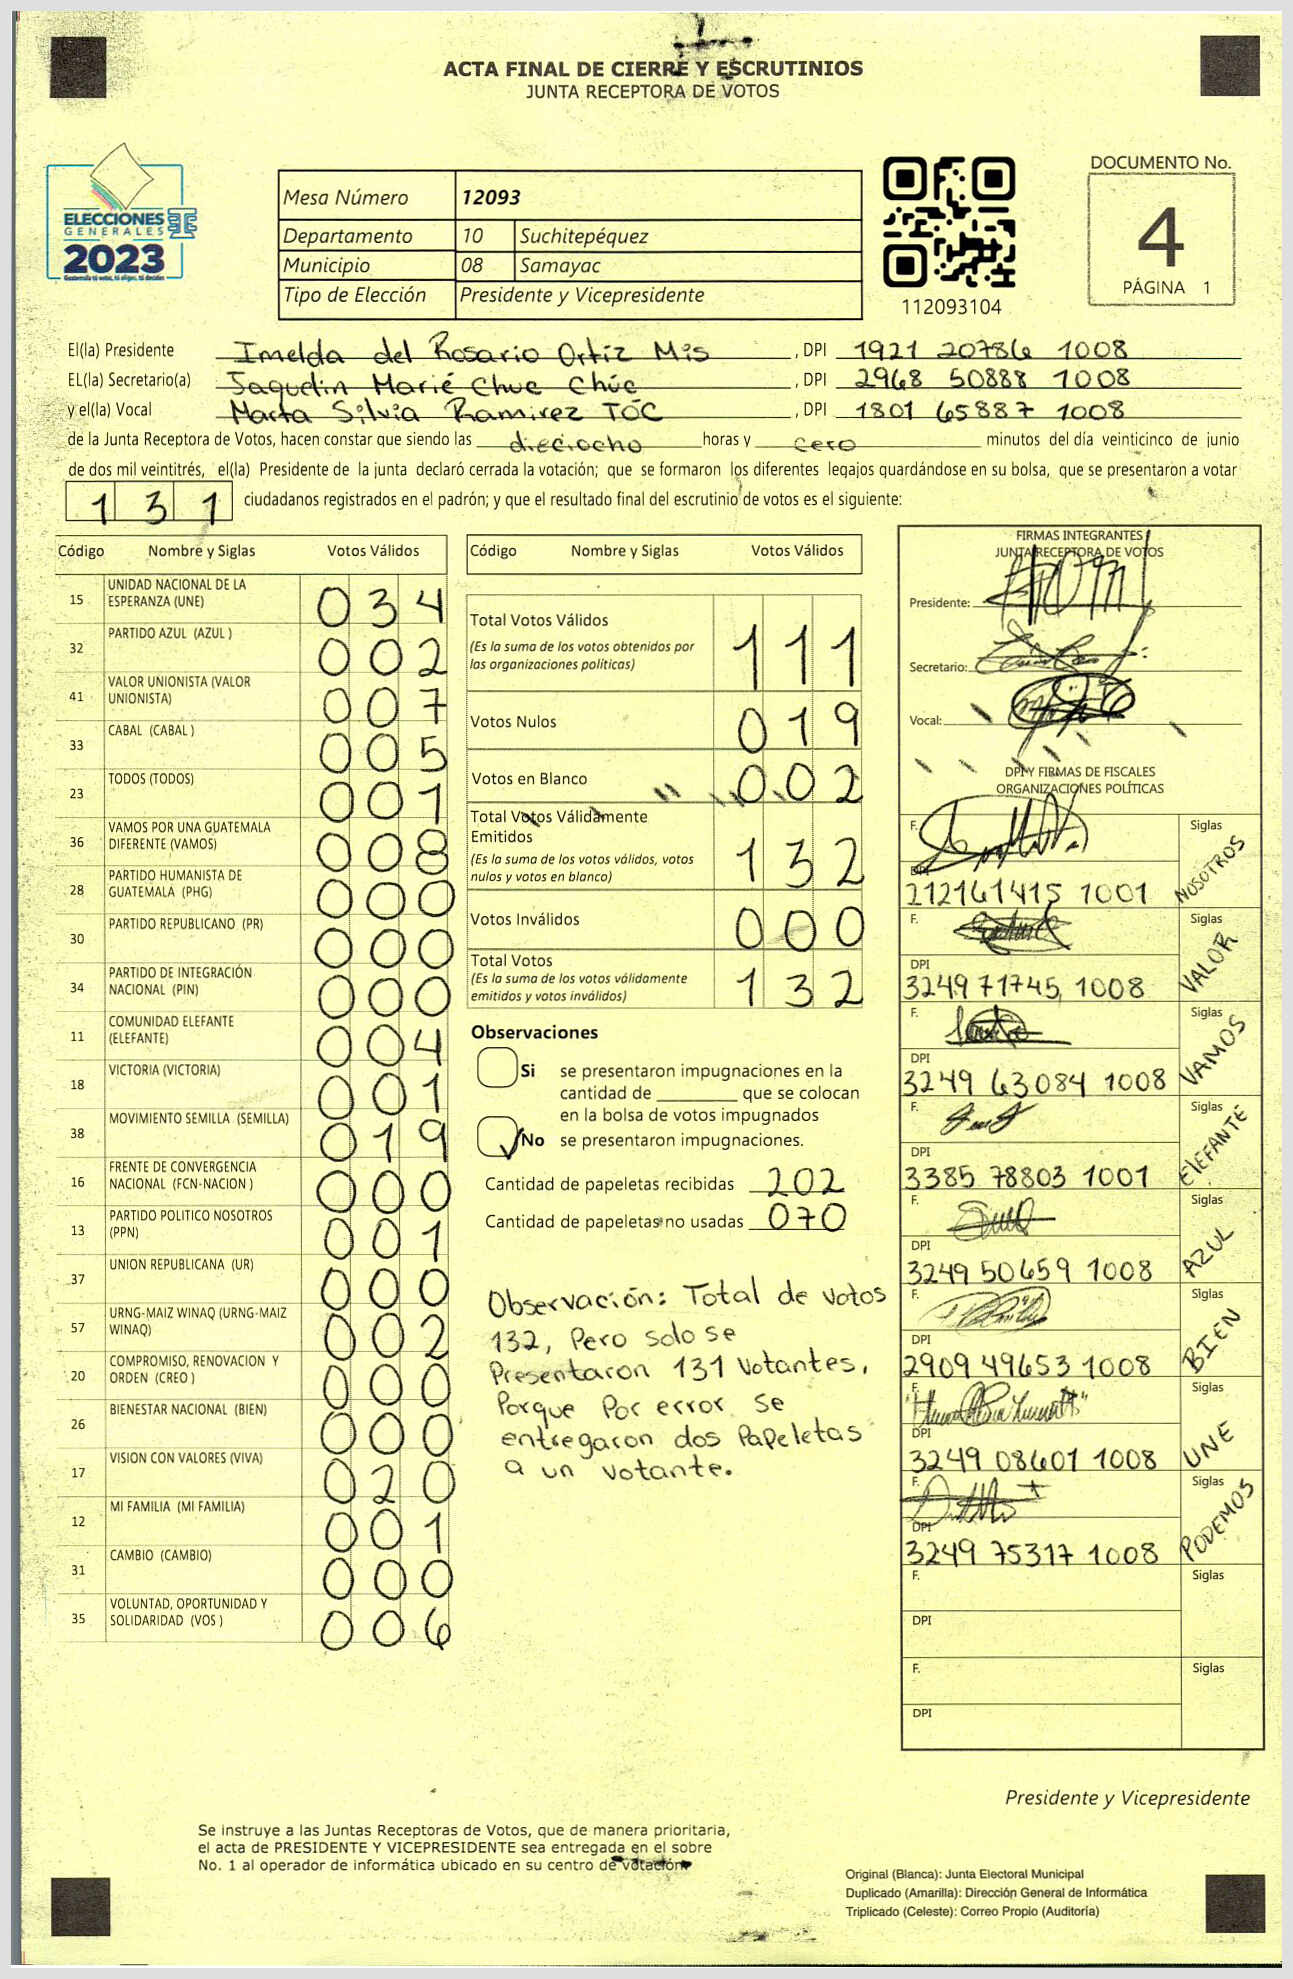 ACTA FINAL DE CIERRE Y ESCRUTINIOS
JUNTA RECEPTORA DE VOTOS
ELECCIONES
GENERALES
2023
Mesa Número 12093
Departamento 10 Suchitepéquez
Municipio 08 Samayac
Tipo de Elección Presidente y Vicepresidente
112093104
DOCUMENTO No.
4
PÁGINA 1
El(la) Presidente Imelda del Rosario Ortiz Mis , DPI 1921 20786 1008
EL(la) Secretario(a) Jaquelin Marié Chuc Chúc , DPI 2968 50888 1008
y el(la) Vocal Marta Silvia Ramirez TÓC , DPI 1801 65887 1008
de la Junta Receptora de Votos, hacen constar que siendo las dieciocho horas y cero minutos del día veinticinco de junio
de dos mil veintitrés, el(la) Presidente de la junta declaró cerrada la votación; que se formaron los diferentes legajos guardándose en su bolsa, que se presentaron a votar
131 ciudadanos registrados en el padrón; y que el resultado final del escrutinio de votos es el siguiente:
Código Nombre y Siglas Votos Válidos
15 UNIDAD NACIONAL DE LA ESPERANZA (UNE) 034
32 PARTIDO AZUL (AZUL ) 002
41 VALOR UNIONISTA (VALOR UNIONISTA) 007
33 CABAL (CABAL ) 005
23 TODOS (TODOS) 001
36 VAMOS POR UNA GUATEMALA DIFERENTE (VAMOS) 008
28 PARTIDO HUMANISTA DE GUATEMALA (PHG) 000
30 PARTIDO REPUBLICANO (PR) 000
34 PARTIDO DE INTEGRACIÓN NACIONAL (PIN) 000
11 COMUNIDAD ELEFANTE (ELEFANTE) 004
18 VICTORIA (VICTORIA) 001
38 MOVIMIENTO SEMILLA (SEMILLA) 019
16 FRENTE DE CONVERGENCIA NACIONAL (FCN-NACION ) 000
13 PARTIDO POLITICO NOSOTROS (PPN) 001
37 UNION REPUBLICANA (UR) 000
57 URNG-MAIZ WINAQ (URNG-MAIZ WINAQ) 002
20 COMPROMISO, RENOVACION Y ORDEN (CREO ) 000
26 BIENESTAR NACIONAL (BIEN) 000
17 VISION CON VALORES (VIVA) 020
12 MI FAMILIA (MI FAMILIA) 001
31 CAMBIO (CAMBIO) 000
35 VOLUNTAD, OPORTUNIDAD Y SOLIDARIDAD (VOS ) 006
Código Nombre y Siglas Votos Válidos
Total Votos Válidos 111
(Es la suma de los votos obtenidos por
las organizaciones políticas)
Votos Nulos 019
Votos en Blanco 002
Total Votos Válidamente
Emitidos 132
(Es la suma de los votos válidos, votos
nulos y votos en blanco)
Votos Inválidos 000
Total Votos 132
(Es la suma de los votos válidamente
emitidos y votos inválidos)
Observaciones
Si se presentaron impugnaciones en la
cantidad de ________ que se colocan
en la bolsa de votos impugnados
No se presentaron impugnaciones.
Cantidad de papeletas recibidas 202
Cantidad de papeletas no usadas 070
Observación: Total de votos
132, Pero solo se
Presentaron 131 votantes,
Porque Por error se
entregaron dos Papeletas
a un votante.
FIRMAS INTEGRANTES
JUNTA RECEPTORA DE VOTOS
Presidente:
Secretario:
Vocal:
DPI Y FIRMAS DE FISCALES
ORGANIZACIONES POLÍTICAS
F. Siglas NOSOTROS
DPI
212161415 1001
F. Siglas VALOR
DPI
3249 71745 1008
F. Siglas VAMOS
DPI
3249 63084 1008
F. Siglas ElEFANTE
DPI
3385 78803 1001
F. Siglas AZUL
DPI
3249 50659 1008
F. Siglas BIEN
DPI
2909 49653 1008
F. Siglas UNE
DPI
3249 08601 1008
F. Siglas PODEMOS
DPI
3249 75317 1008
F. Siglas
DPI
F. Siglas
DPI
Presidente y Vicepresidente
Se instruye a las Juntas Receptoras de Votos, que de manera prioritaria,
el acta de PRESIDENTE Y VICEPRESIDENTE sea entregada en el sobre
No. 1 al operador de informática ubicado en su centro de votación.
Original (Blanca): Junta Electoral Municipal
Duplicado (Amarilla): Dirección General de Informática
Triplicado (Celeste): Correo Propio (Auditoría)